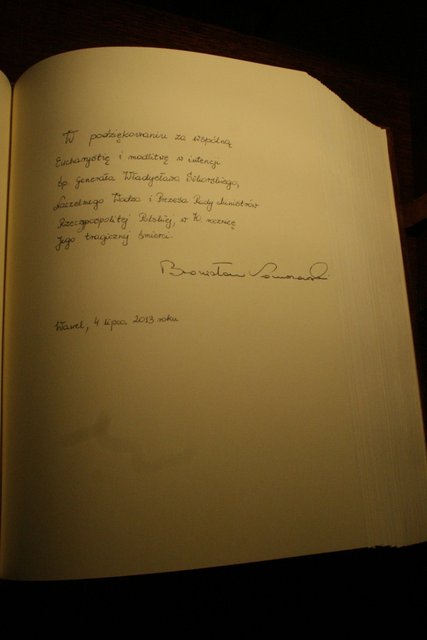 W podziękowaniu za wspólną
Eucharystię i modlitwę w intencji
śp. Generała Władysława Sikorskiego,
Naczelnego Wodza i Prezesa Rady Ministrów
Rzeczypospolitej Polskiej, w 70. rocznicę
Jego tragicznej śmierci.
Bronisław Komorowski
Wawel, 4 lipca 2013 roku